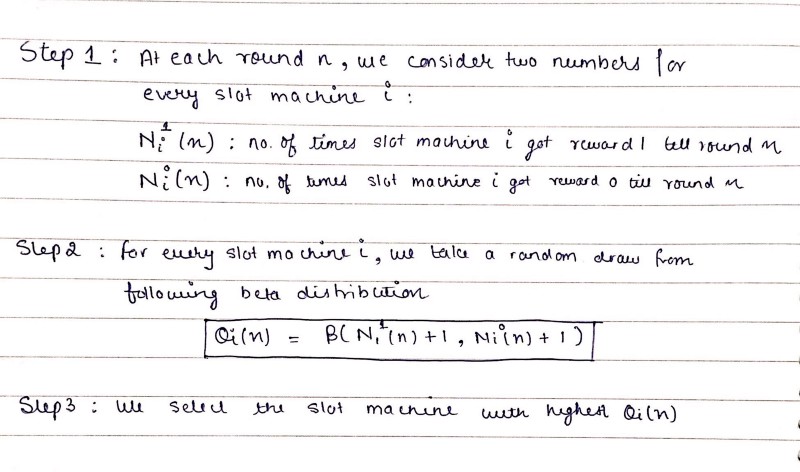 Step 1 : At each round n, we consider two numbers for
every slot machine i :
Nᵢ¹(n) : no. of times slot machine i got reward 1 till round n
Nᵢ⁰(n) : no. of times slot machine i got reward 0 till round n
Step 2 : for every slot machine i, we take a random draw from
following beta distribution
θᵢ(n) = β( Nᵢ¹(n) + 1 , Nᵢ⁰(n) + 1 )
Step 3 : We select the slot machine with highest θᵢ(n)